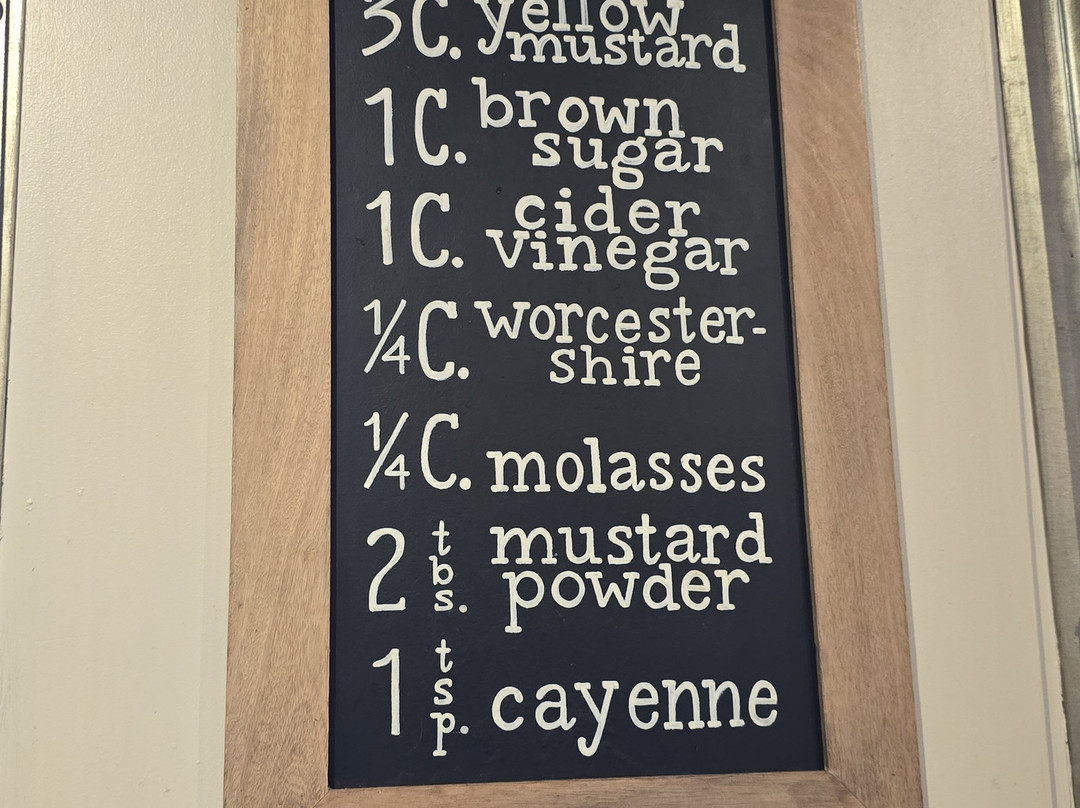 3C. yellow
mustard
1C. brown
sugar
1C. cider
vinegar
¼C. worcester-
shire
¼C. molasses
2 tbs. mustard
powder
1 tsp. cayenne